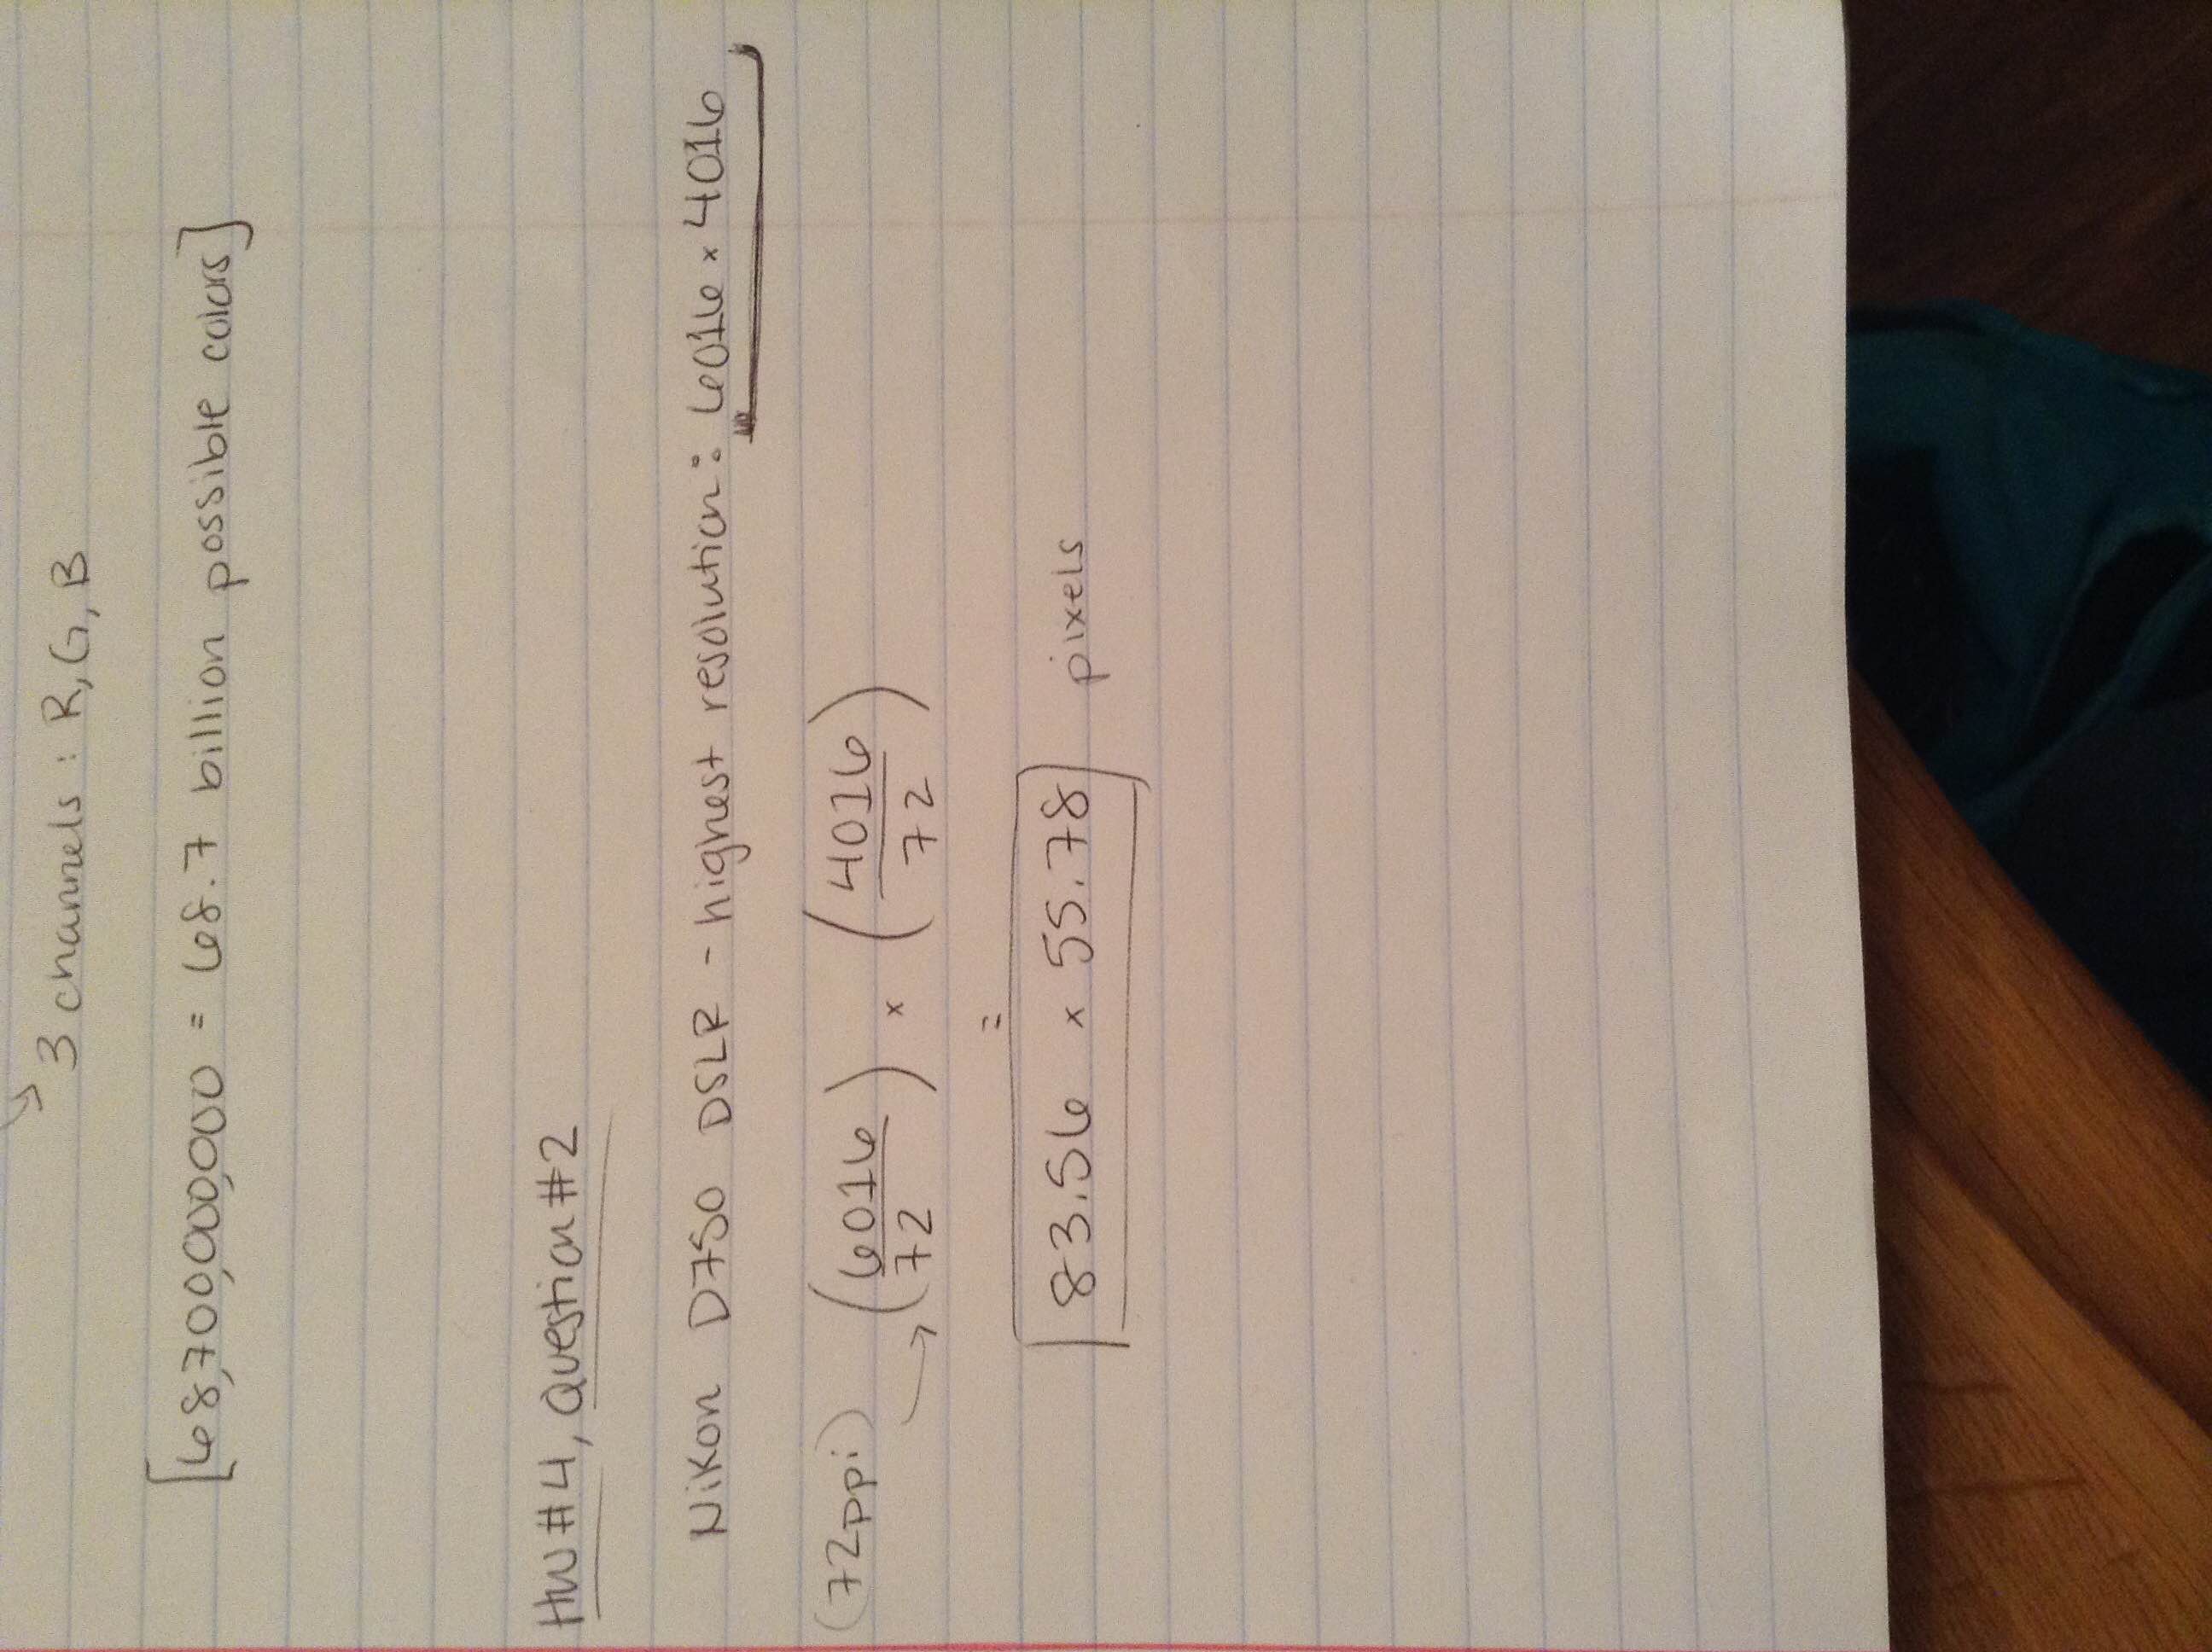 3 channels : R, G, B
[68,700,000,000 = 68.7 billion possible colors]
HW #4, Question #2
Nikon D750 DSLR - highest resolution: 6016 x 4016
(72ppi) (6016/72) x (4016/72)
=
83.56 x 55.78 pixels